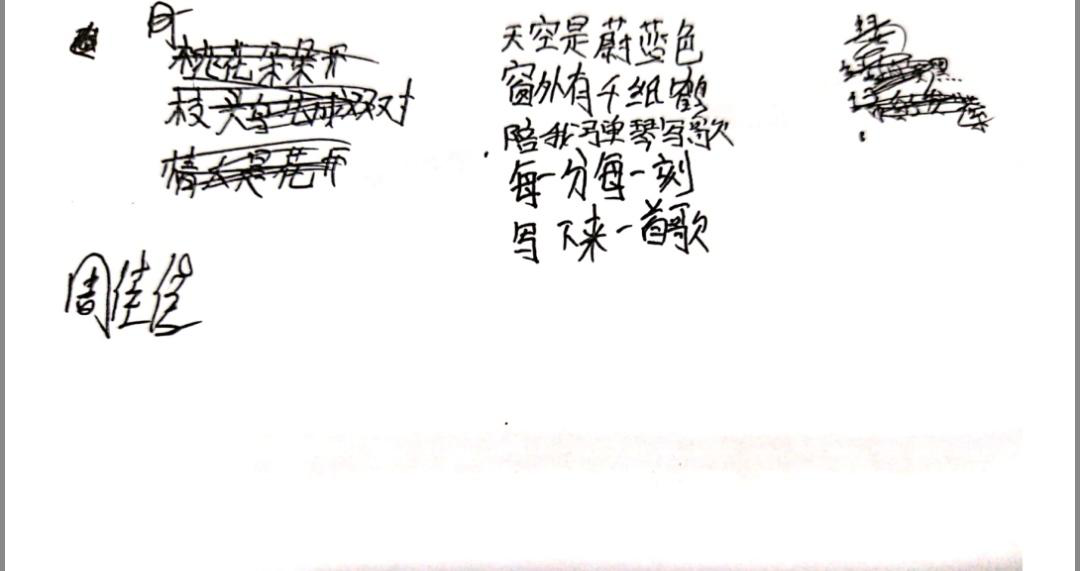 桃花朵朵开
枝头鸟儿成双对
情人是花开
周佳佳
天空是蔚蓝色
窗外有千纸鹤
陪我弹琴写歌
每一分每一刻
写下来一首歌